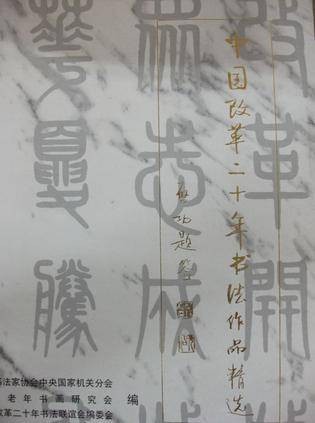 改革開
中国改革二十年书法作品精选
启功题签
眾志成
華夏騰
书法家协会中央国家机关分会
老年书画研究会 编
改革二十年书法联谊会编委会